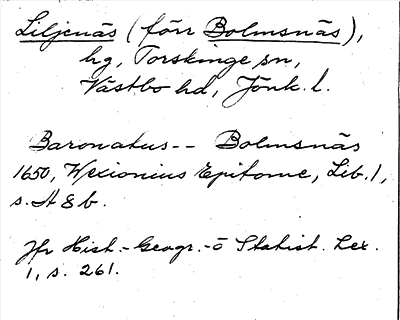 Liljenäs (förr Bolmsnäs),
hg, Torskinge sn,
Västbo hd, Jönk. l.
Baronatus -- Bolmsnäs
1650, Wexionius Epitome, Lib. 1,
s. H 8 b.
Jfr Hist.-Geogr.-o Statist. Lex.
1, s. 261.